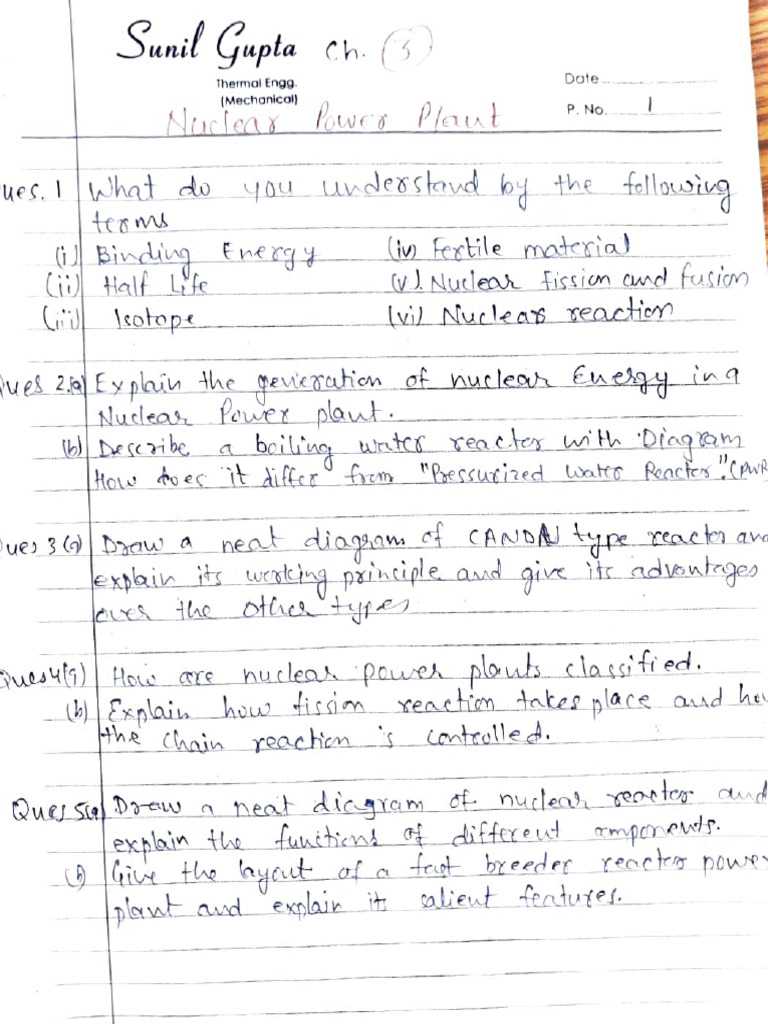 Sunil Gupta Ch. (3)
Thermal Engg.
(Mechanical)
Date
P. No. 1
Nuclear Power Plant
ues. 1 What do you understand by the following
terms
(i) Binding Energy (iv) Fertile material
(ii) Half Life (v). Nuclear fission and fusion
(iii) Isotope (vi) Nuclear reaction
ues 2.(a) Explain the generation of nuclear Energy in a
Nuclear Power plant.
(b) Describe a boiling water reactor with Diagram
How does it differ from "Pressurized Water Reactor". (PWR
ues 3 (a) Draw a neat diagram of CANDU type reactor and
explain its working principle and give its advantages
over the other types
ues 4(a) How are nuclear power plants classified.
(b) Explain how fission reaction takes place and how
the chain reaction is controlled.
Ques 5(a) Draw a neat diagram of nuclear reactor and
explain the functions of different components.
(b) Give the layout of a fast breeder reactor power
plant and explain its salient features.